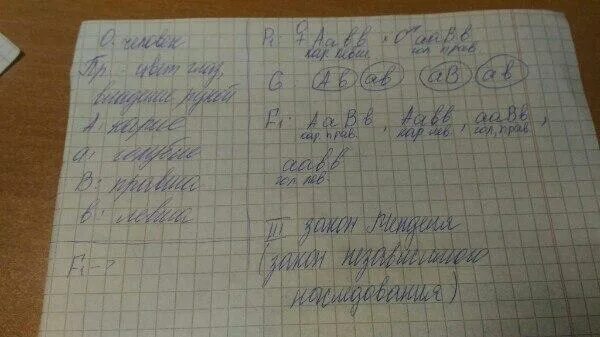 О: человек
Пр. - цвет глаз,
владение рукой
А: карие
а: голубые
В: правша
в: левша
F₁ - ?
P₁: ♀ Аавв × ♂ ааВв
кар. левш. гол. прав.
G: Ав ав аВ ав
F₁: АаВв, Аавв, ааВв,
кар. прав. кар. лев. гол. прав.
аавв
гол. лев.
III закон Менделя
(закон независимого
наследования)